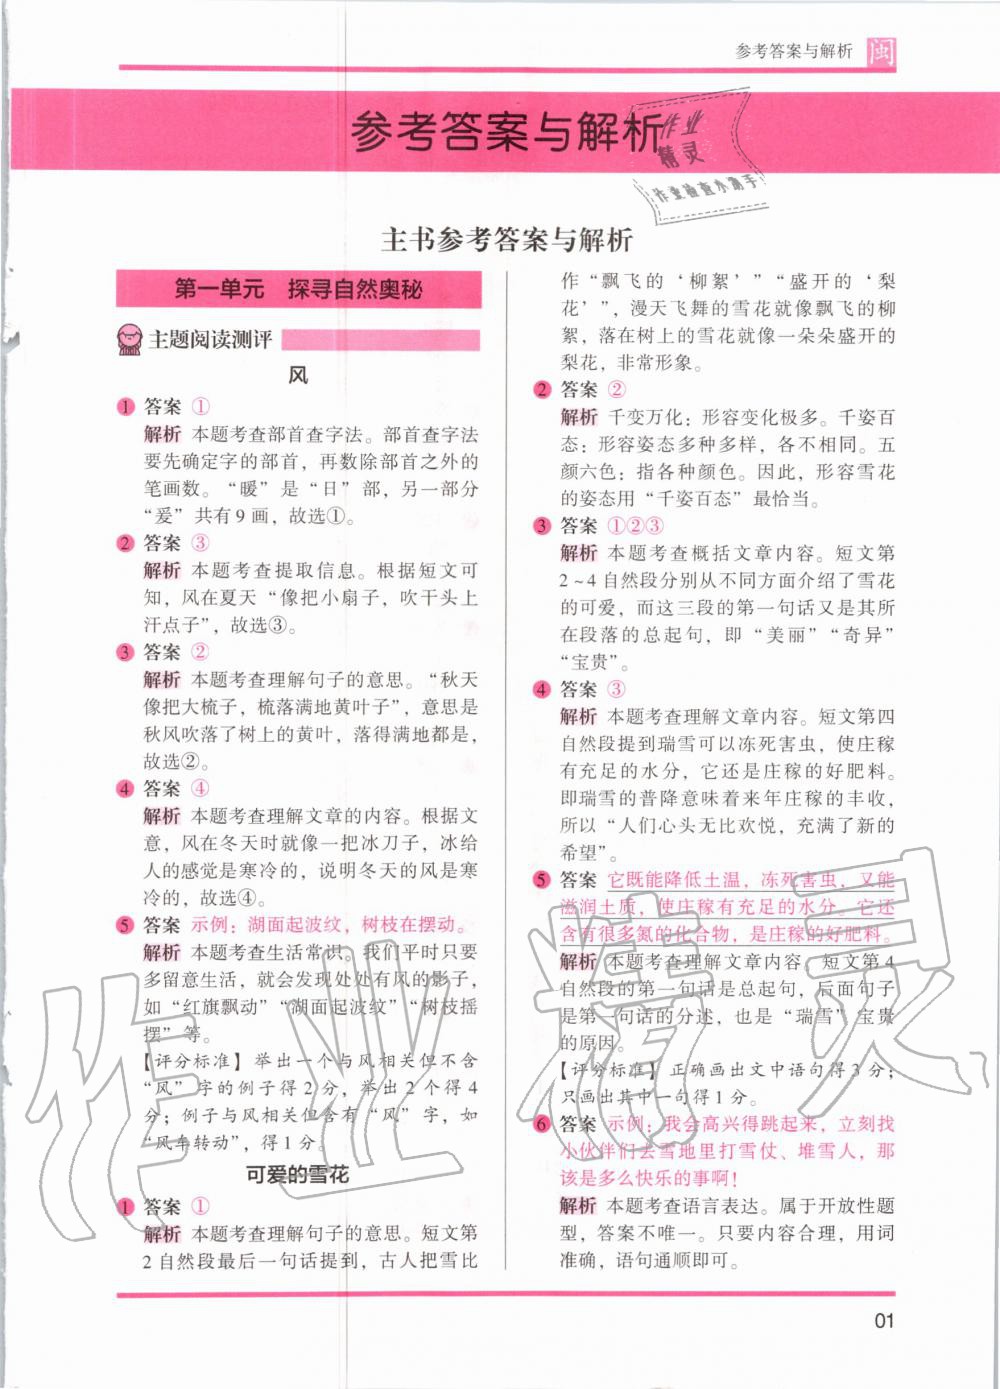 参考答案与解析 闽
参考答案与解析
作业
精灵
作业检查小助手
主书参考答案与解析
第一单元 探寻自然奥秘
主题阅读测评
风
1 答案 ①
解析 本题考查部首查字法。部首查字法
要先确定字的部首，再数除部首之外的
笔画数。“暖”是“日”部，另一部分
“爰”共有9画，故选①。
2 答案 ③
解析 本题考查提取信息。根据短文可
知，风在夏天“像把小扇子，吹干头上
汗点子”，故选③。
3 答案 ②
解析 本题考查理解句子的意思。“秋天
像把大梳子，梳落满地黄叶子”，意思是
秋风吹落了树上的黄叶，落得满地都是，
故选②。
4 答案 ④
解析 本题考查理解文章的内容。根据文
意，风在冬天时就像一把冰刀子，冰给
人的感觉是寒冷的，说明冬天的风是寒
冷的，故选④。
5 答案 示例：湖面起波纹，树枝在摆动。
解析 本题考查生活常识。我们平时只要
多留意生活，就会发现处处有风的影子，
如“红旗飘动”“湖面起波纹”“树枝摇
摆”等。
【评分标准】举出一个与风相关但不含
“风”字的例子得2分，举出2个得4
分；例子与风相关但含有“风”字，如
“风车转动”，得1分。
可爱的雪花
1 答案 ①
解析 本题考查理解句子的意思。短文第
2自然段最后一句话提到，古人把雪比
作“飘飞的‘柳絮’”“盛开的‘梨
花’”，漫天飞舞的雪花就像飘飞的柳
絮，落在树上的雪花就像一朵朵盛开的
梨花，非常形象。
2 答案 ②
解析 千变万化：形容变化极多。千姿百
态：形容姿态多种多样，各不相同。五
颜六色：指各种颜色。因此，形容雪花
的姿态用“千姿百态”最恰当。
3 答案 ①②③
解析 本题考查概括文章内容。短文第
2~4自然段分别从不同方面介绍了雪花
的可爱，而这三段的第一句话又是其所
在段落的总起句，即“美丽”“奇异”
“宝贵”。
4 答案 ③
解析 本题考查理解文章内容。短文第四
自然段提到瑞雪可以冻死害虫，使庄稼
有充足的水分，它还是庄稼的好肥料。
即瑞雪的普降意味着来年庄稼的丰收，
所以“人们心头无比欢悦，充满了新的
希望”。
5 答案 它既能降低土温，冻死害虫，又能
滋润土质，使庄稼有充足的水分。它还
含有很多氮的化合物，是庄稼的好肥料。
解析 本题考查理解文章内容。短文第4
自然段的第一句话是总起句，后面句子
是第一句话的分述，也是“瑞雪”宝贵
的原因。
【评分标准】正确画出文中语句得3分；
只画出其中一句得1分。
6 答案 示例：我会高兴得跳起来，立刻找
小伙伴们去雪地里打雪仗、堆雪人，那
该是多么快乐的事啊！
解析 本题考查语言表达。属于开放性题
型，答案不唯一。只要内容合理，用词
准确，语句通顺即可。
作业精灵
01